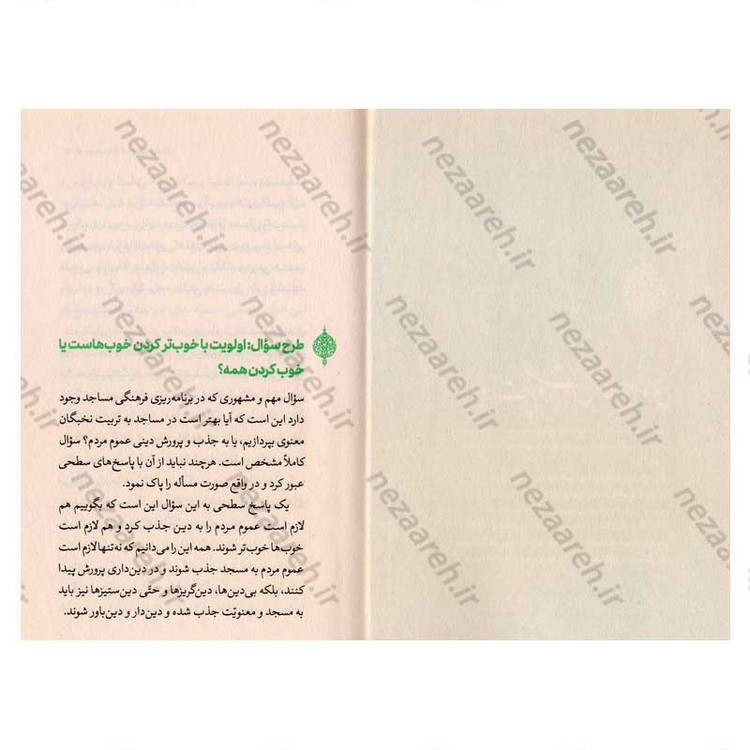 طرح سؤال: اولویت با خوب‌تر کردن خوب‌هاست یا
خوب کردن همه؟
سؤال مهم و مشهوری که در برنامه‌ریزی فرهنگی مساجد وجود
دارد این است که آیا بهتر است در مساجد به تربیت نخبگان
معنوی بپردازیم، یا به جذب و پرورش دینی عموم مردم؟ سؤال
کاملاً مشخص است. هرچند نباید از آن با پاسخ‌های سطحی
عبور کرد و در واقع صورت مسأله را پاک نمود.
یک پاسخ سطحی به این سؤال این است که بگوییم هم
لازم است عموم مردم را به دین جذب کرد و هم لازم است
خوب‌ها خوب‌تر شوند. همه این را می‌دانیم که نه تنها لازم است
عموم مردم به مسجد جذب شوند و در دین‌داری پرورش پیدا
کنند، بلکه بی‌دین‌ها، دین‌گریزها و حتّی دین‌ستیزها نیز باید
به مسجد و معنویّت جذب شده و دین‌دار و دین‌باور شوند.
nezaareh.ir
nezaareh.ir
nezaareh.ir
nezaareh.ir
nezaareh.ir
nezaareh.ir
nezaareh.ir
nezaareh.ir
nezaareh.ir
nezaareh.ir